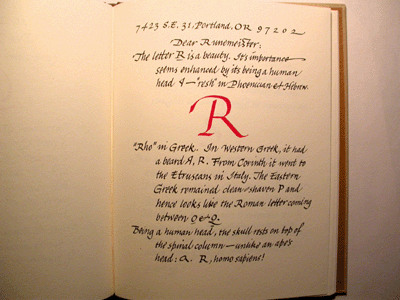 7423 S.E. 31, Portland, OR 97202
Dear Runemeister:
The letter R is a beauty. It's importance
seems enhanced by its being a human
head 4 — "resh" in Phoenician & Hebrew.
R
"Rho" in Greek. In Western Greek, it had
a beard A, R. From Corinth it went to
the Etruscans in Italy. The Eastern
Greek remained clean-shaven P and
hence looks like the Roman letter coming
between O & Q.
Being a human head, the skull rests on top of
the spinal column — unlike an ape's
head: R, homo sapiens!